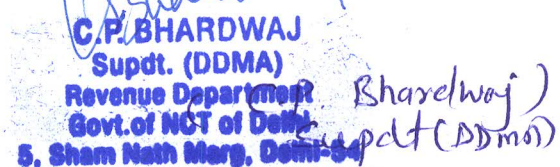 C.P. BHARDWAJ
Supdt. (DDMA)
Revenue Department
Govt. of NCT of Delhi
5, Sham Nath Marg, Delhi-54
(C.P. Bhardwaj)
Supdt (DDMA)